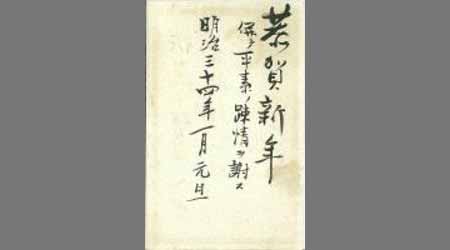 恭賀新年
併テ平素ノ疎情ヲ謝ス
明治三十四年一月元旦